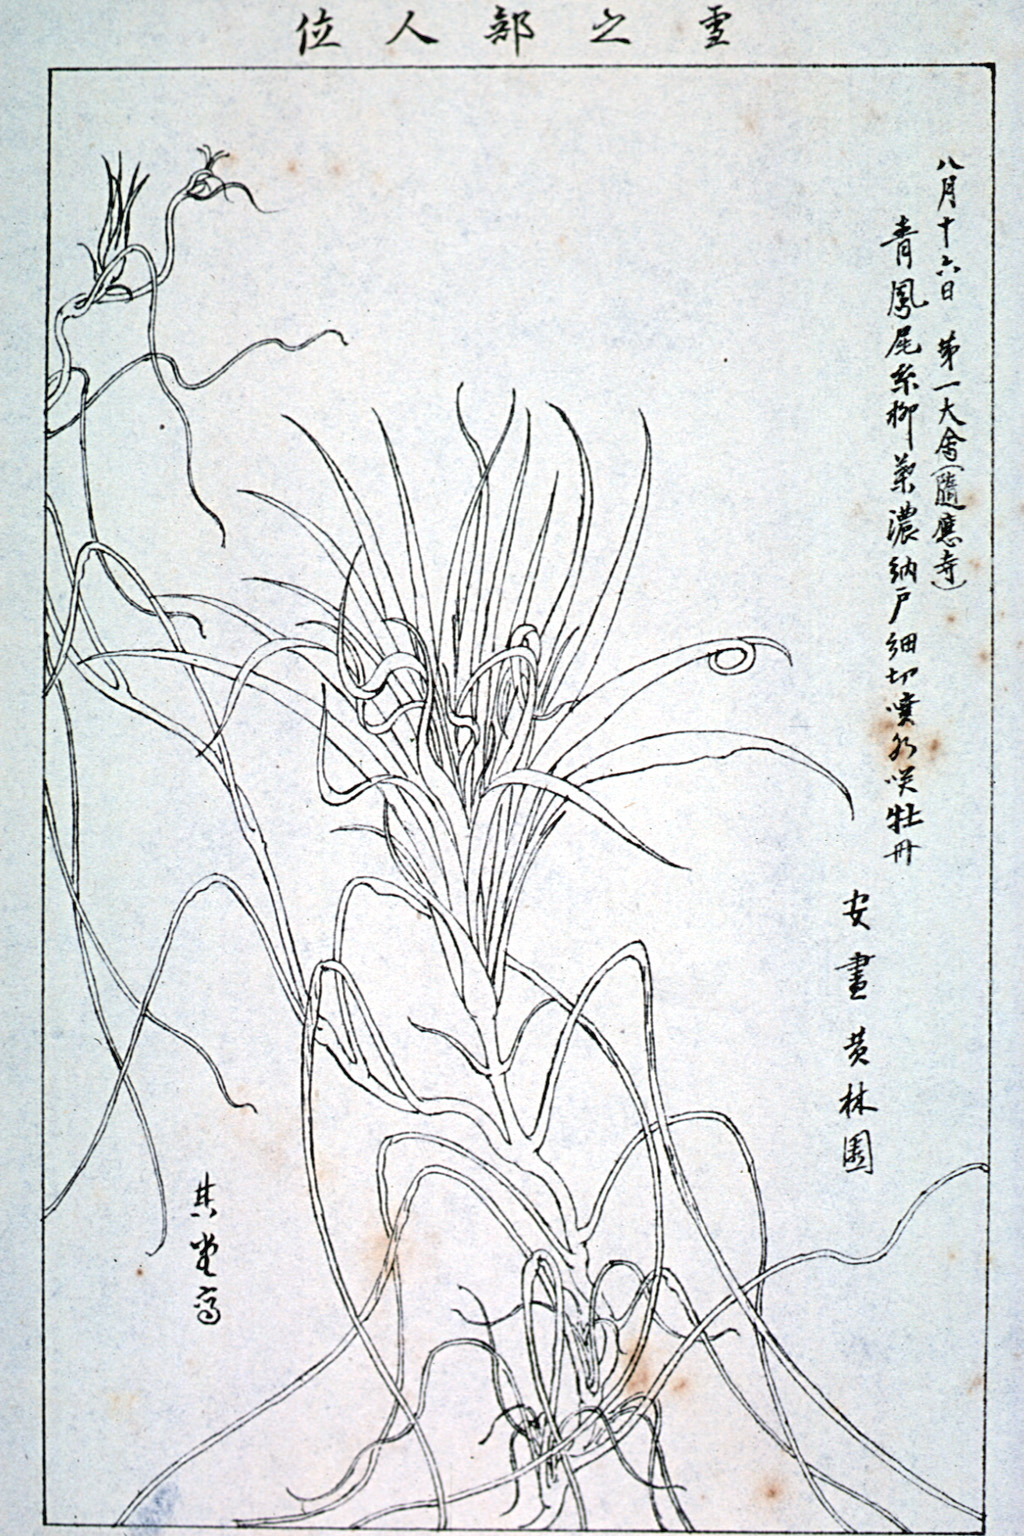 雪之部人位
八月十六日 第一大會(隨應寺)
青鳳尾糸柳葉濃納戸細切噴水咲牡丹
安壽黄林園
其堂寫